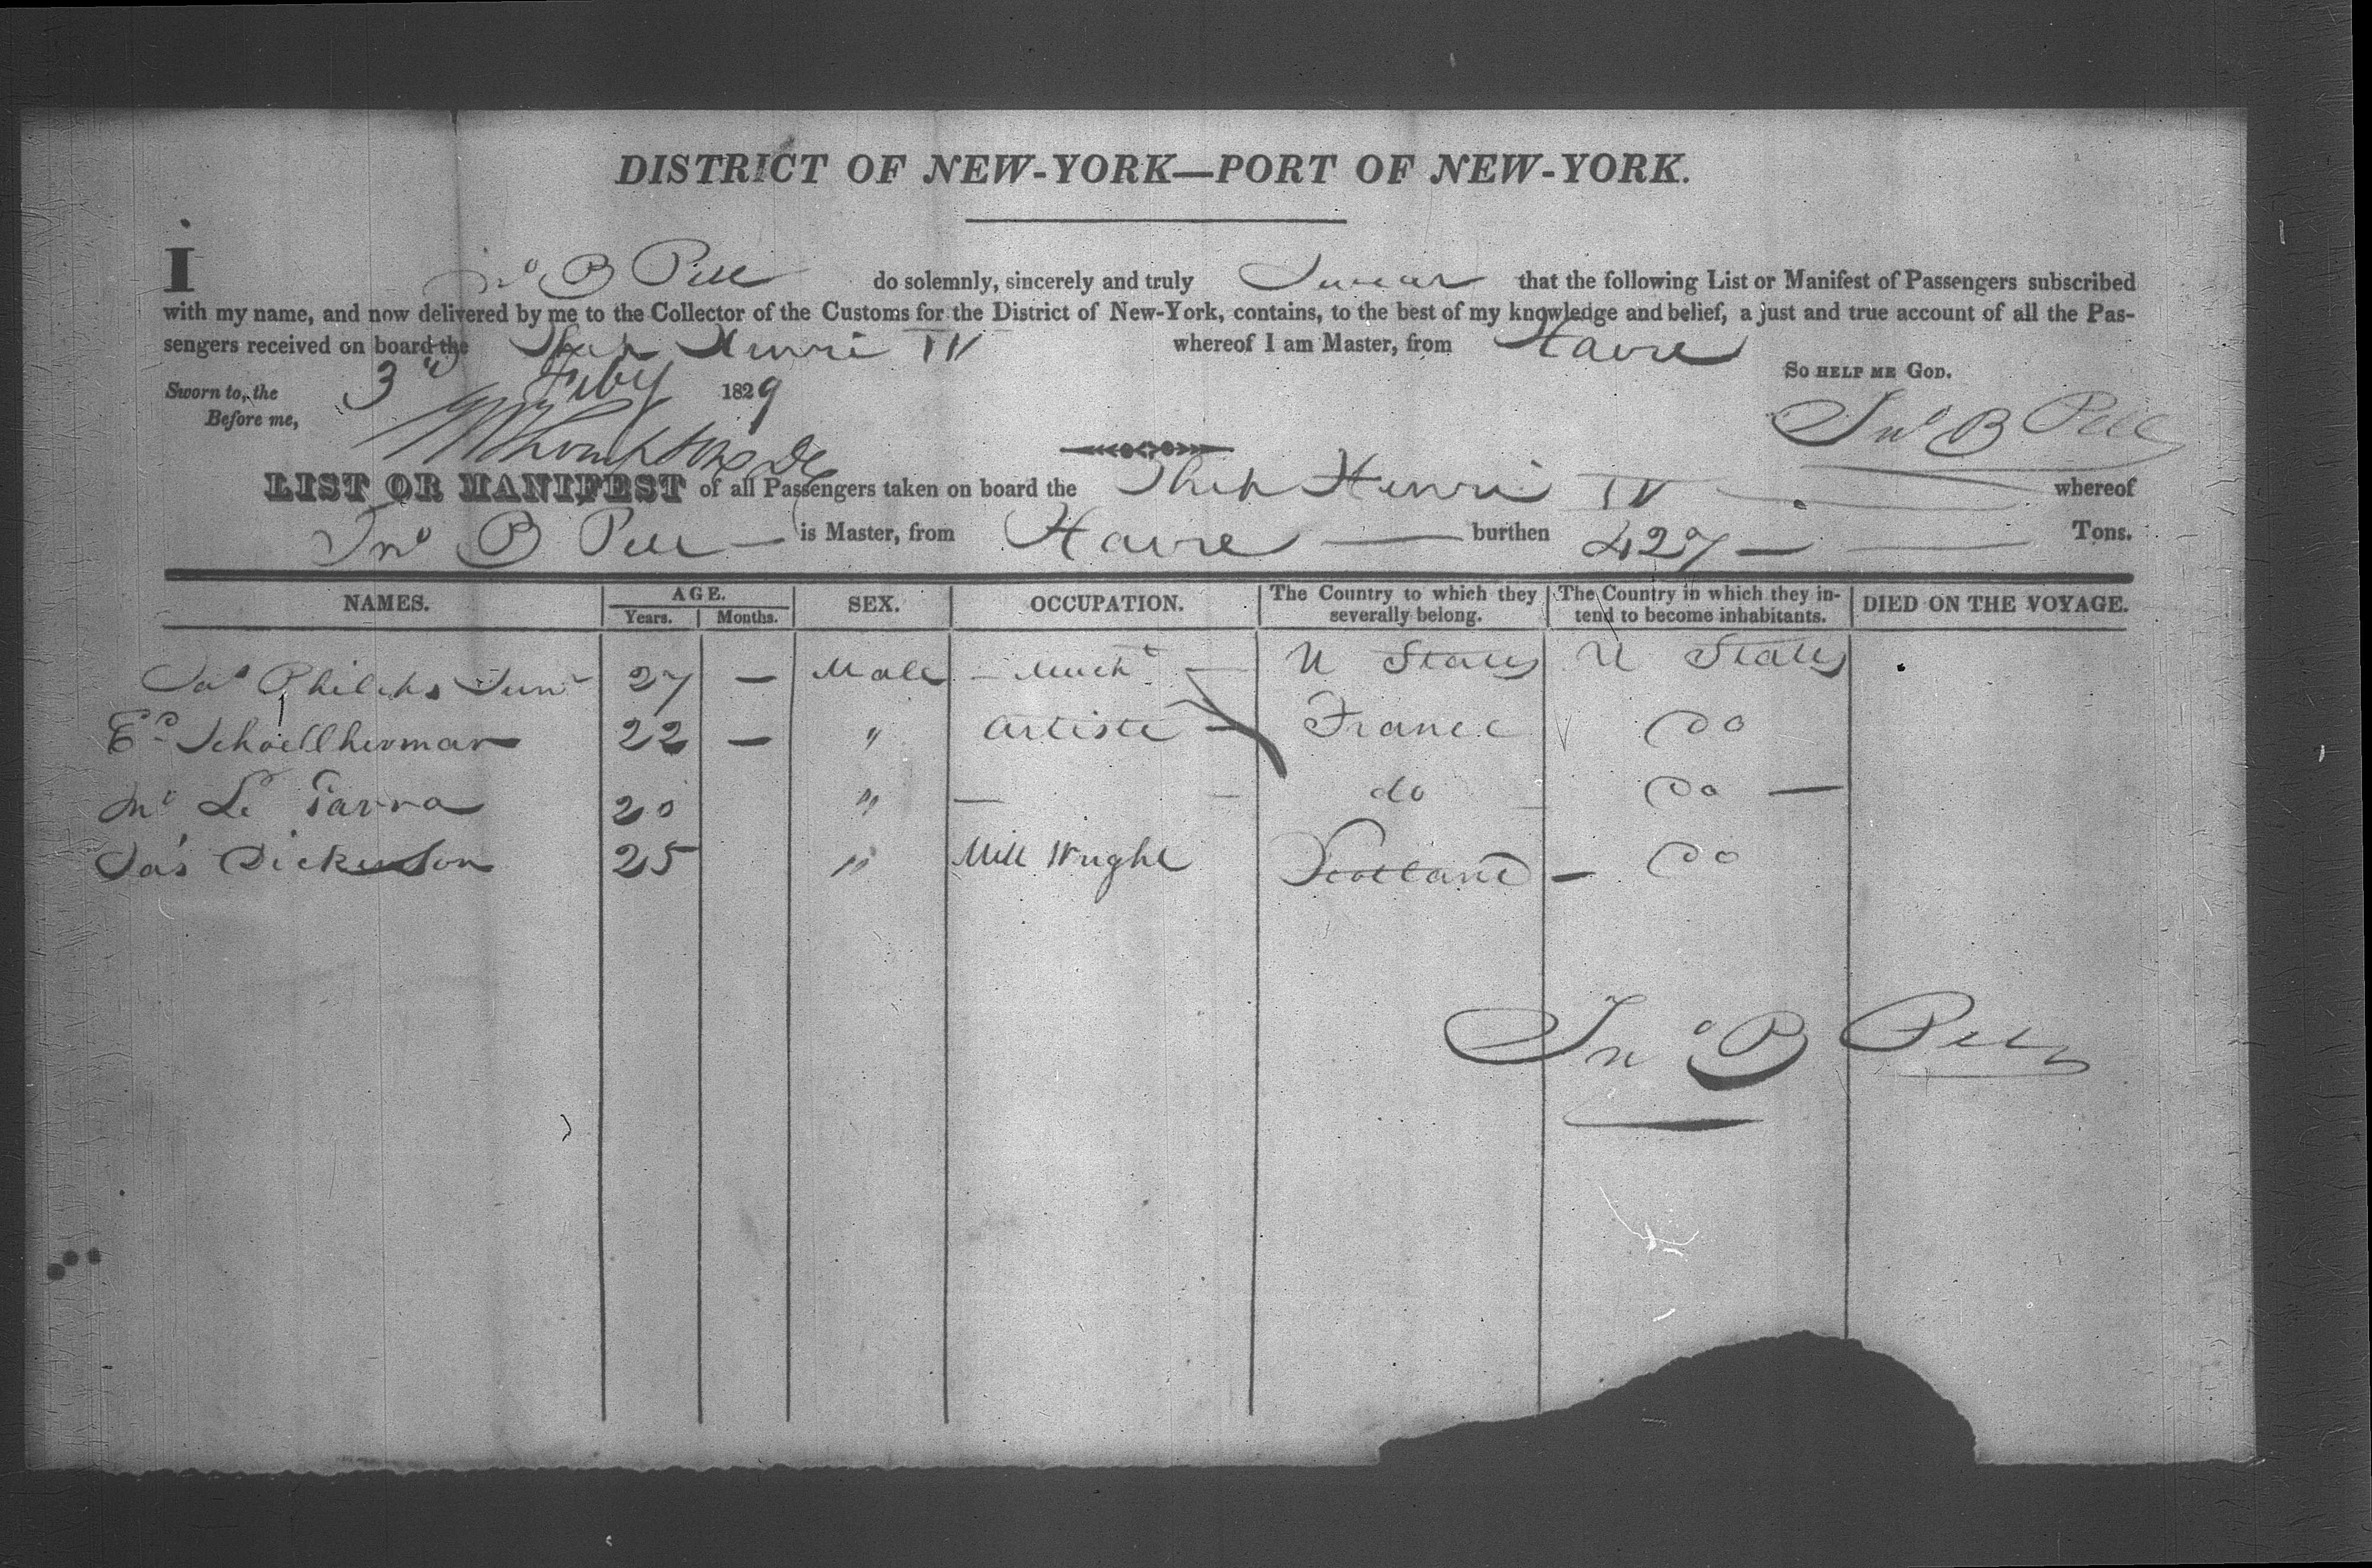 DISTRICT OF NEW-YORK—PORT OF NEW-YORK.
I Jno B Pell do solemnly, sincerely and truly Swear that the following List or Manifest of Passengers subscribed
with my name, and now delivered by me to the Collector of the Customs for the District of New-York, contains, to the best of my knowledge and belief, a just and true account of all the Pas-
sengers received on board the Ship Henri IV whereof I am Master, from Havre
So HELP ME GOD.
Sworn to, the 3d Feby 1829
Before me, Thompson Jno B Pell
LIST OR MANIFEST of all Passengers taken on board the Ship Henri IV whereof
Jno B Pell is Master, from Havre burthen 427 Tons.
NAMES. AGE. Years. Months. SEX. OCCUPATION. The Country to which they severally belong. The Country in which they in-tend to become inhabitants. DIED ON THE VOYAGE.
Jas Philips Junr 27 — Male Mercht U States U States
Ed Schoellherman 22 — " Artiste France Do
Mr Le 20 " — do Do —
Jas Dickenson 25 " Mill Wright Scotland — Do
Jno B Pell